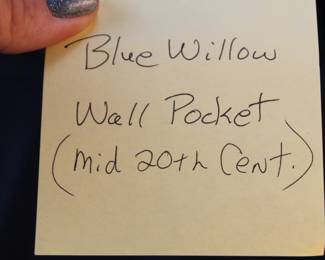 Blue Willow
Wall Pocket
(mid 20th Cent.)